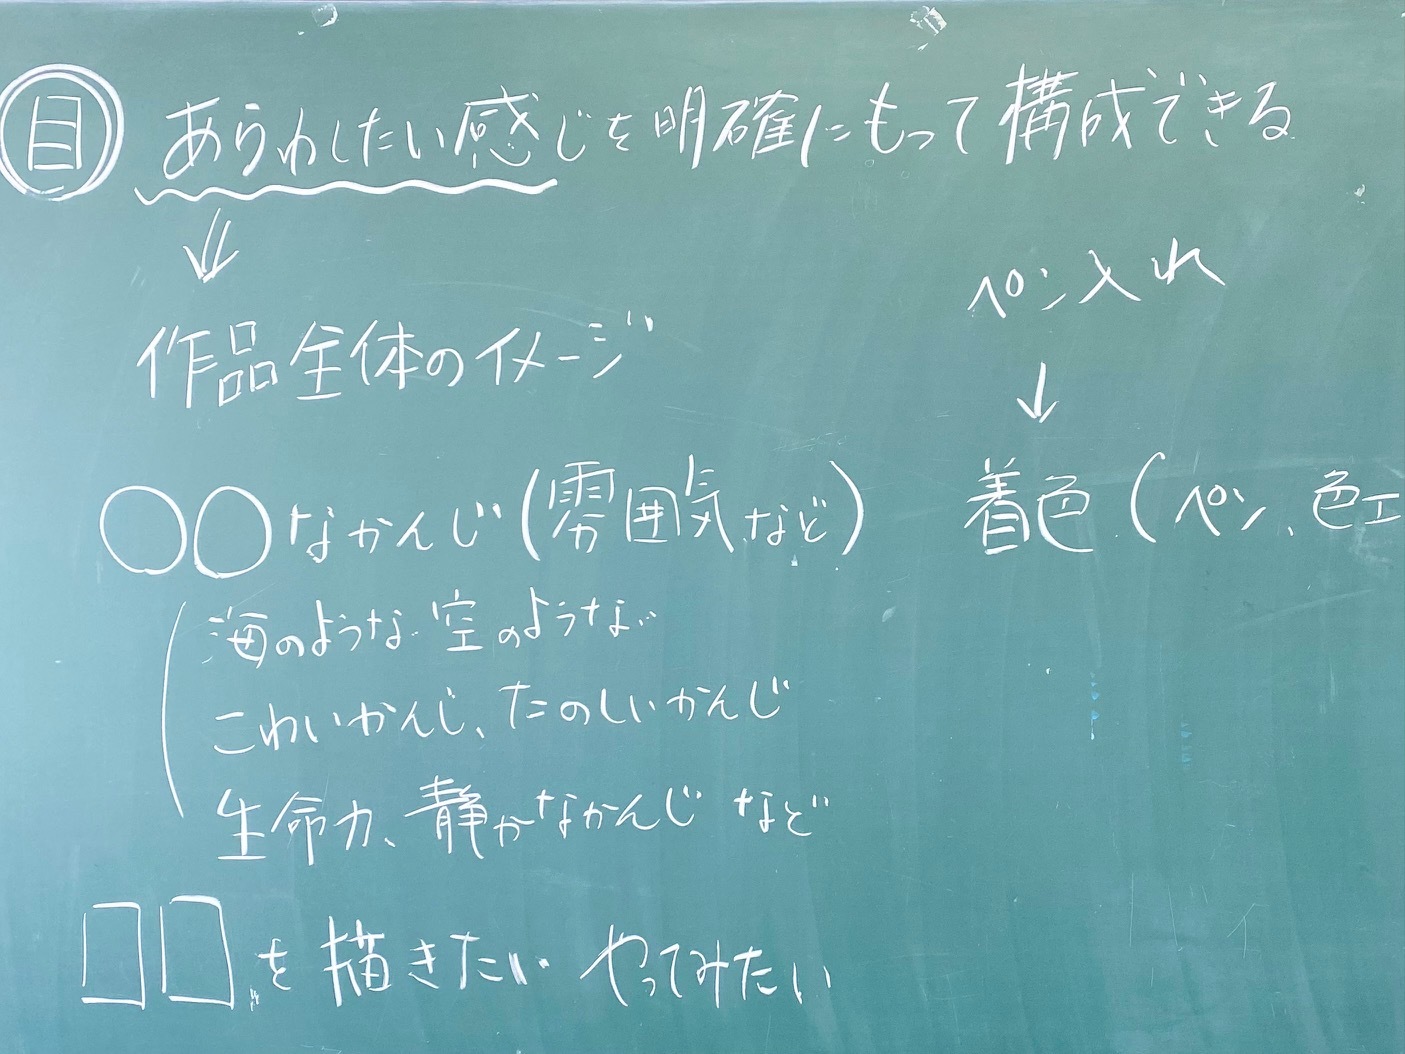 目 あらわしたい感じを明確にもって構成できる
作品全体のイメージ
○○なかんじ(雰囲気など)
海のような 空のような
こわいかんじ、たのしいかんじ
生命力、静かなかんじ など
□□を描きたい やってみたい
ペン入れ
↓
着色(ペン、色エ